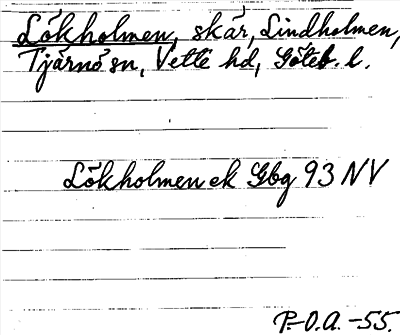 Lökholmen, skär, Lindholmen,
Tjärnö sn, Vette hd, Göteb. l.
Lökholmen ek Gbg 93 NV
P.-O.A. -55.